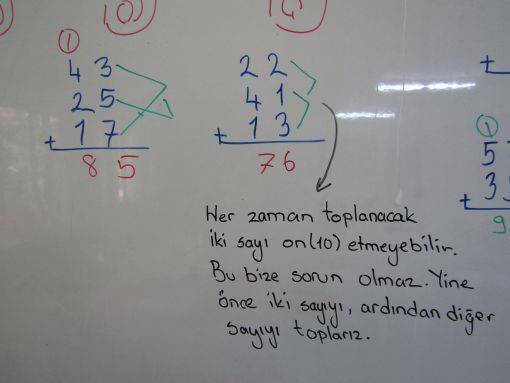 ①
43
25
+ 17
85
22
41
+ 13
76
Her zaman toplanacak
iki sayı on(10) etmeyebilir.
Bu bize sorun olmaz. Yine
önce iki sayıyı, ardından diğer
sayıyı toplarız.
+
①
5
+ 3
9